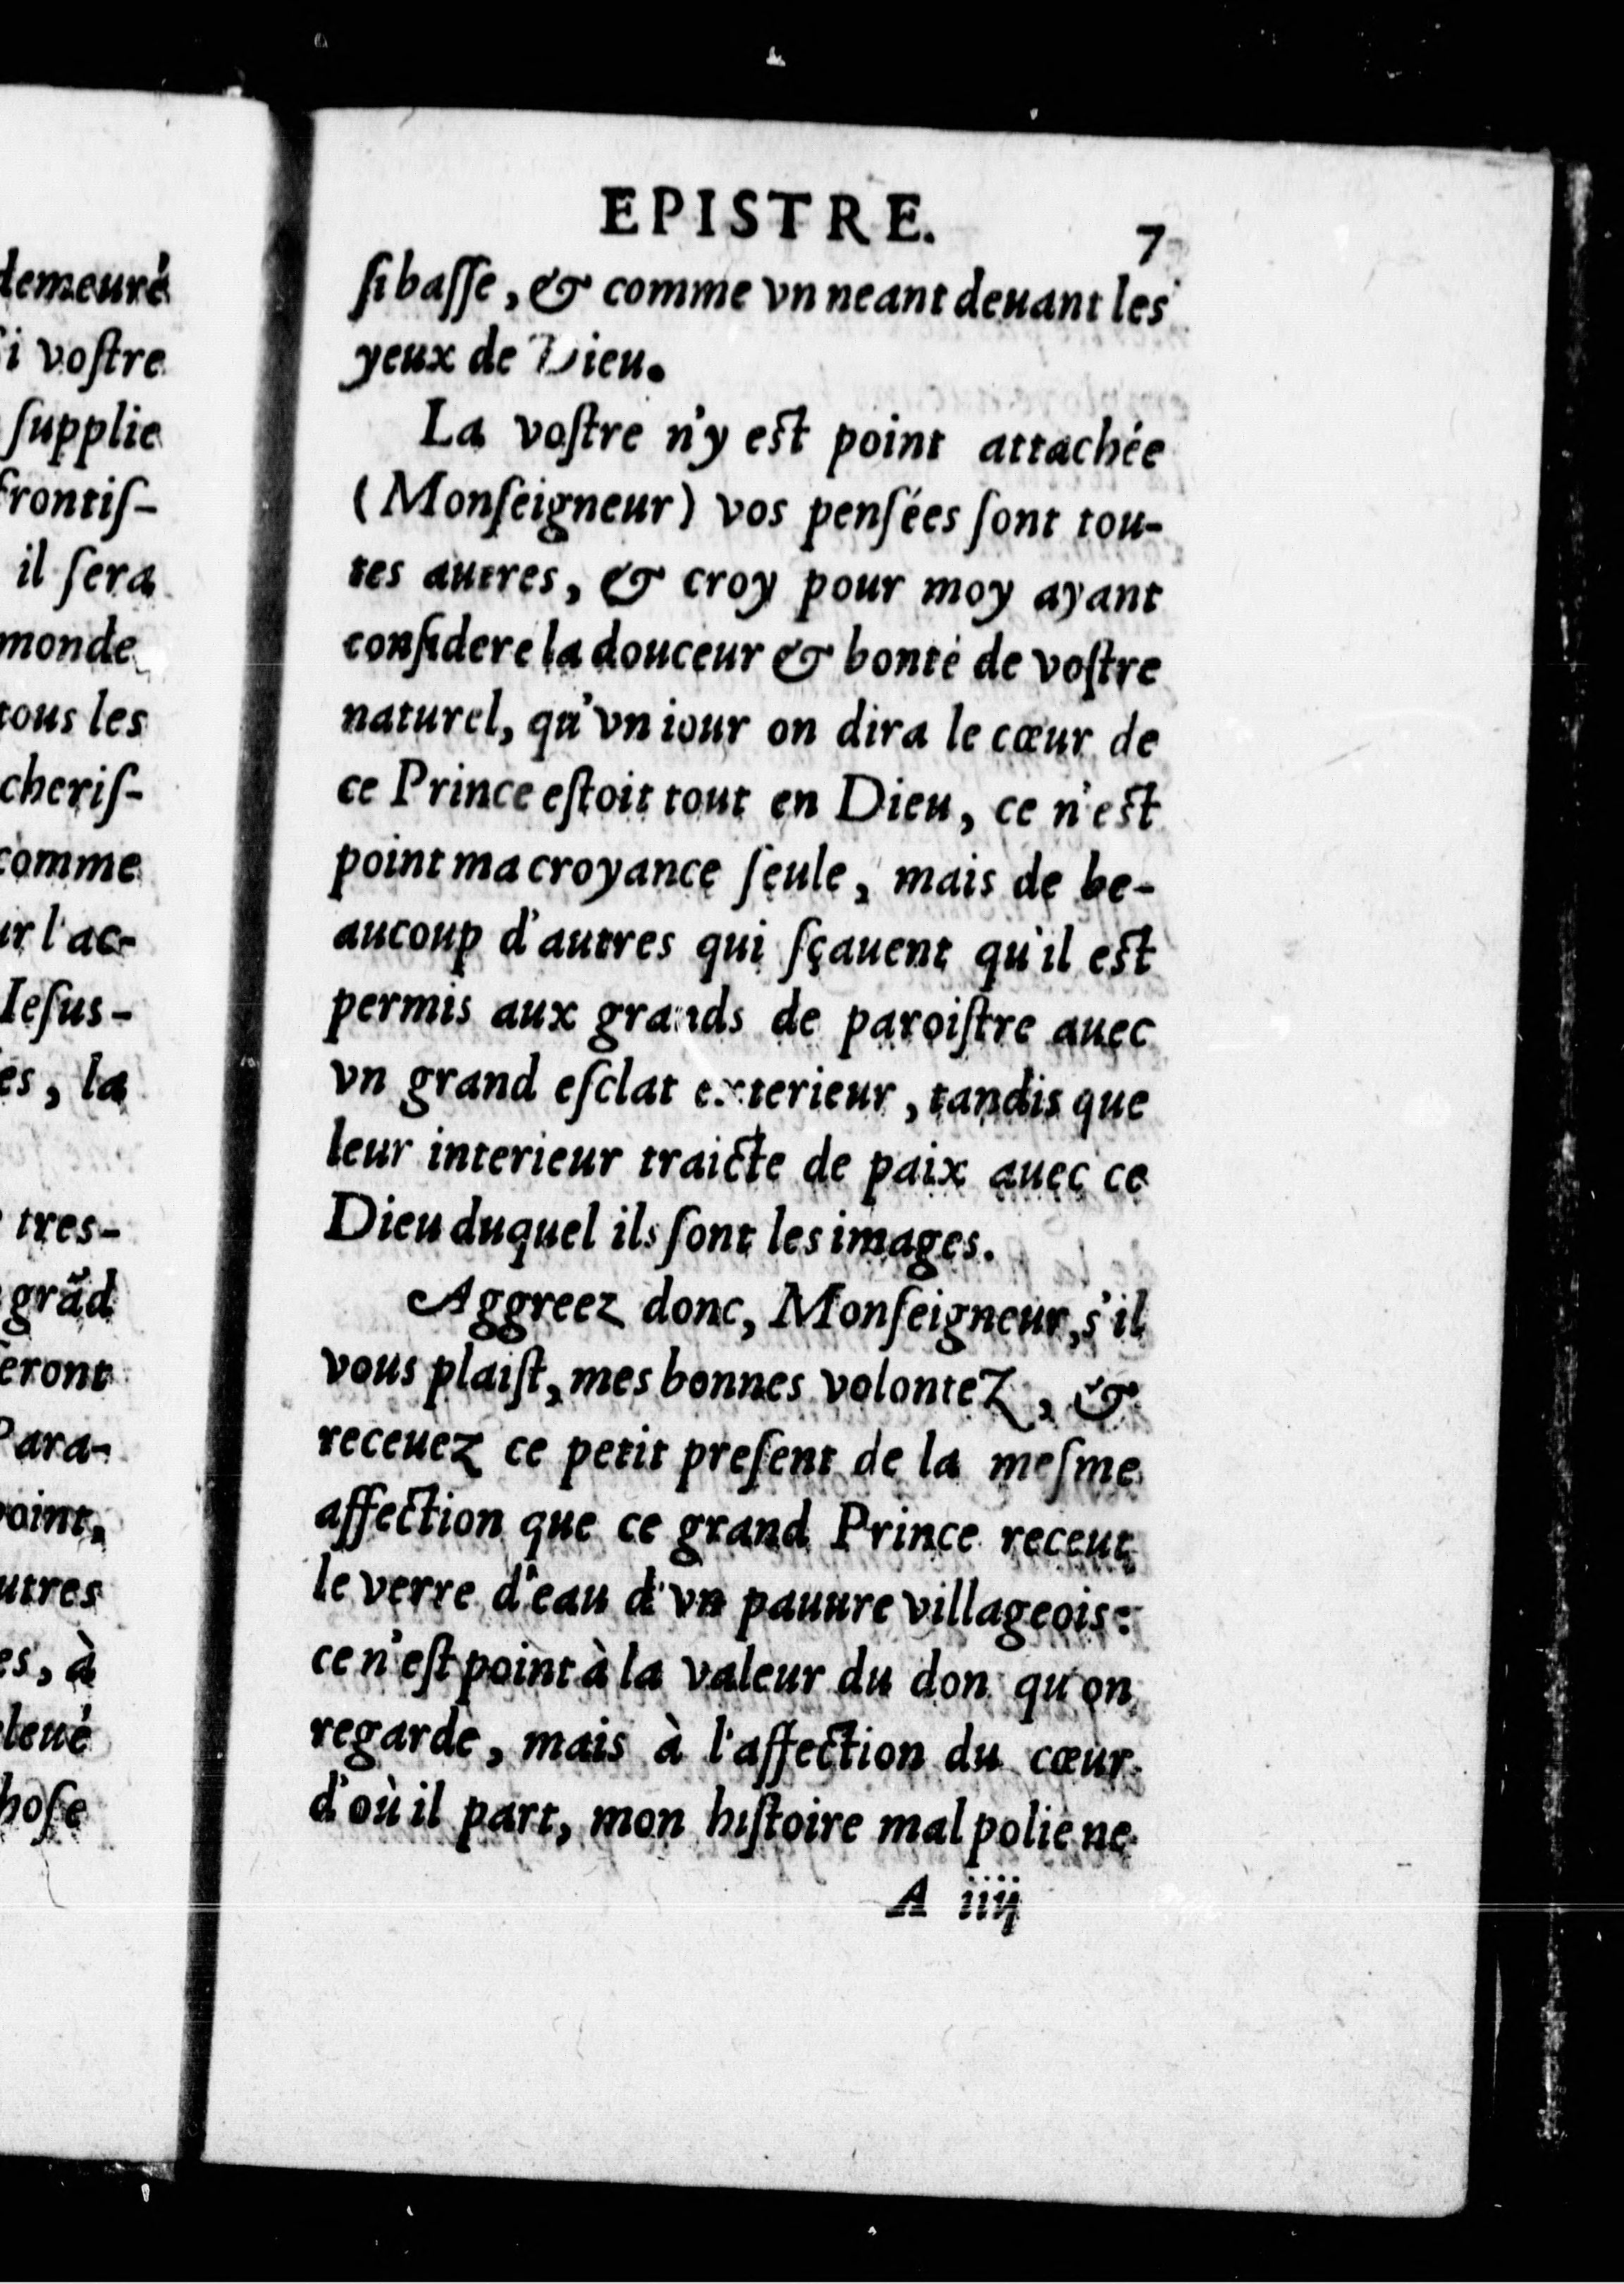 demeuré
i vostre
supplie
frontis-
il sera
monde
tous les
cheris-
comme
l'ac-
Iesus-
es, la
tres-
grãd
eront
Para-
point,
utres
es, à
leué
hose
EPISTRE. 7
si basse, & comme vn neant deuant les
yeux de Dieu.
La vostre n'y est point attachée
(Monseigneur) vos pensées sont tou-
tes autres, & croy pour moy ayant
consideré la douceur & bonté de vostre
naturel, qu'vn iour on dira le cœur de
ce Prince estoit tout en Dieu, ce n'est
point ma croyance seule, mais de be-
aucoup d'autres qui sçauent qu'il est
permis aux grands de paroistre auec
vn grand esclat exterieur, tandis que
leur interieur traicte de paix auec ce
Dieu duquel ils sont les images.
Aggreez donc, Monseigneur, s'il
vous plaist, mes bonnes volontez, &
receuez ce petit present de la mesme
affection que ce grand Prince receut
le verre d'eau d'vn pauure villageois:
ce n'est point à la valeur du don qu'on
regarde, mais à l'affection du cœur
d'où il part, mon histoire mal polie ne
A iiij